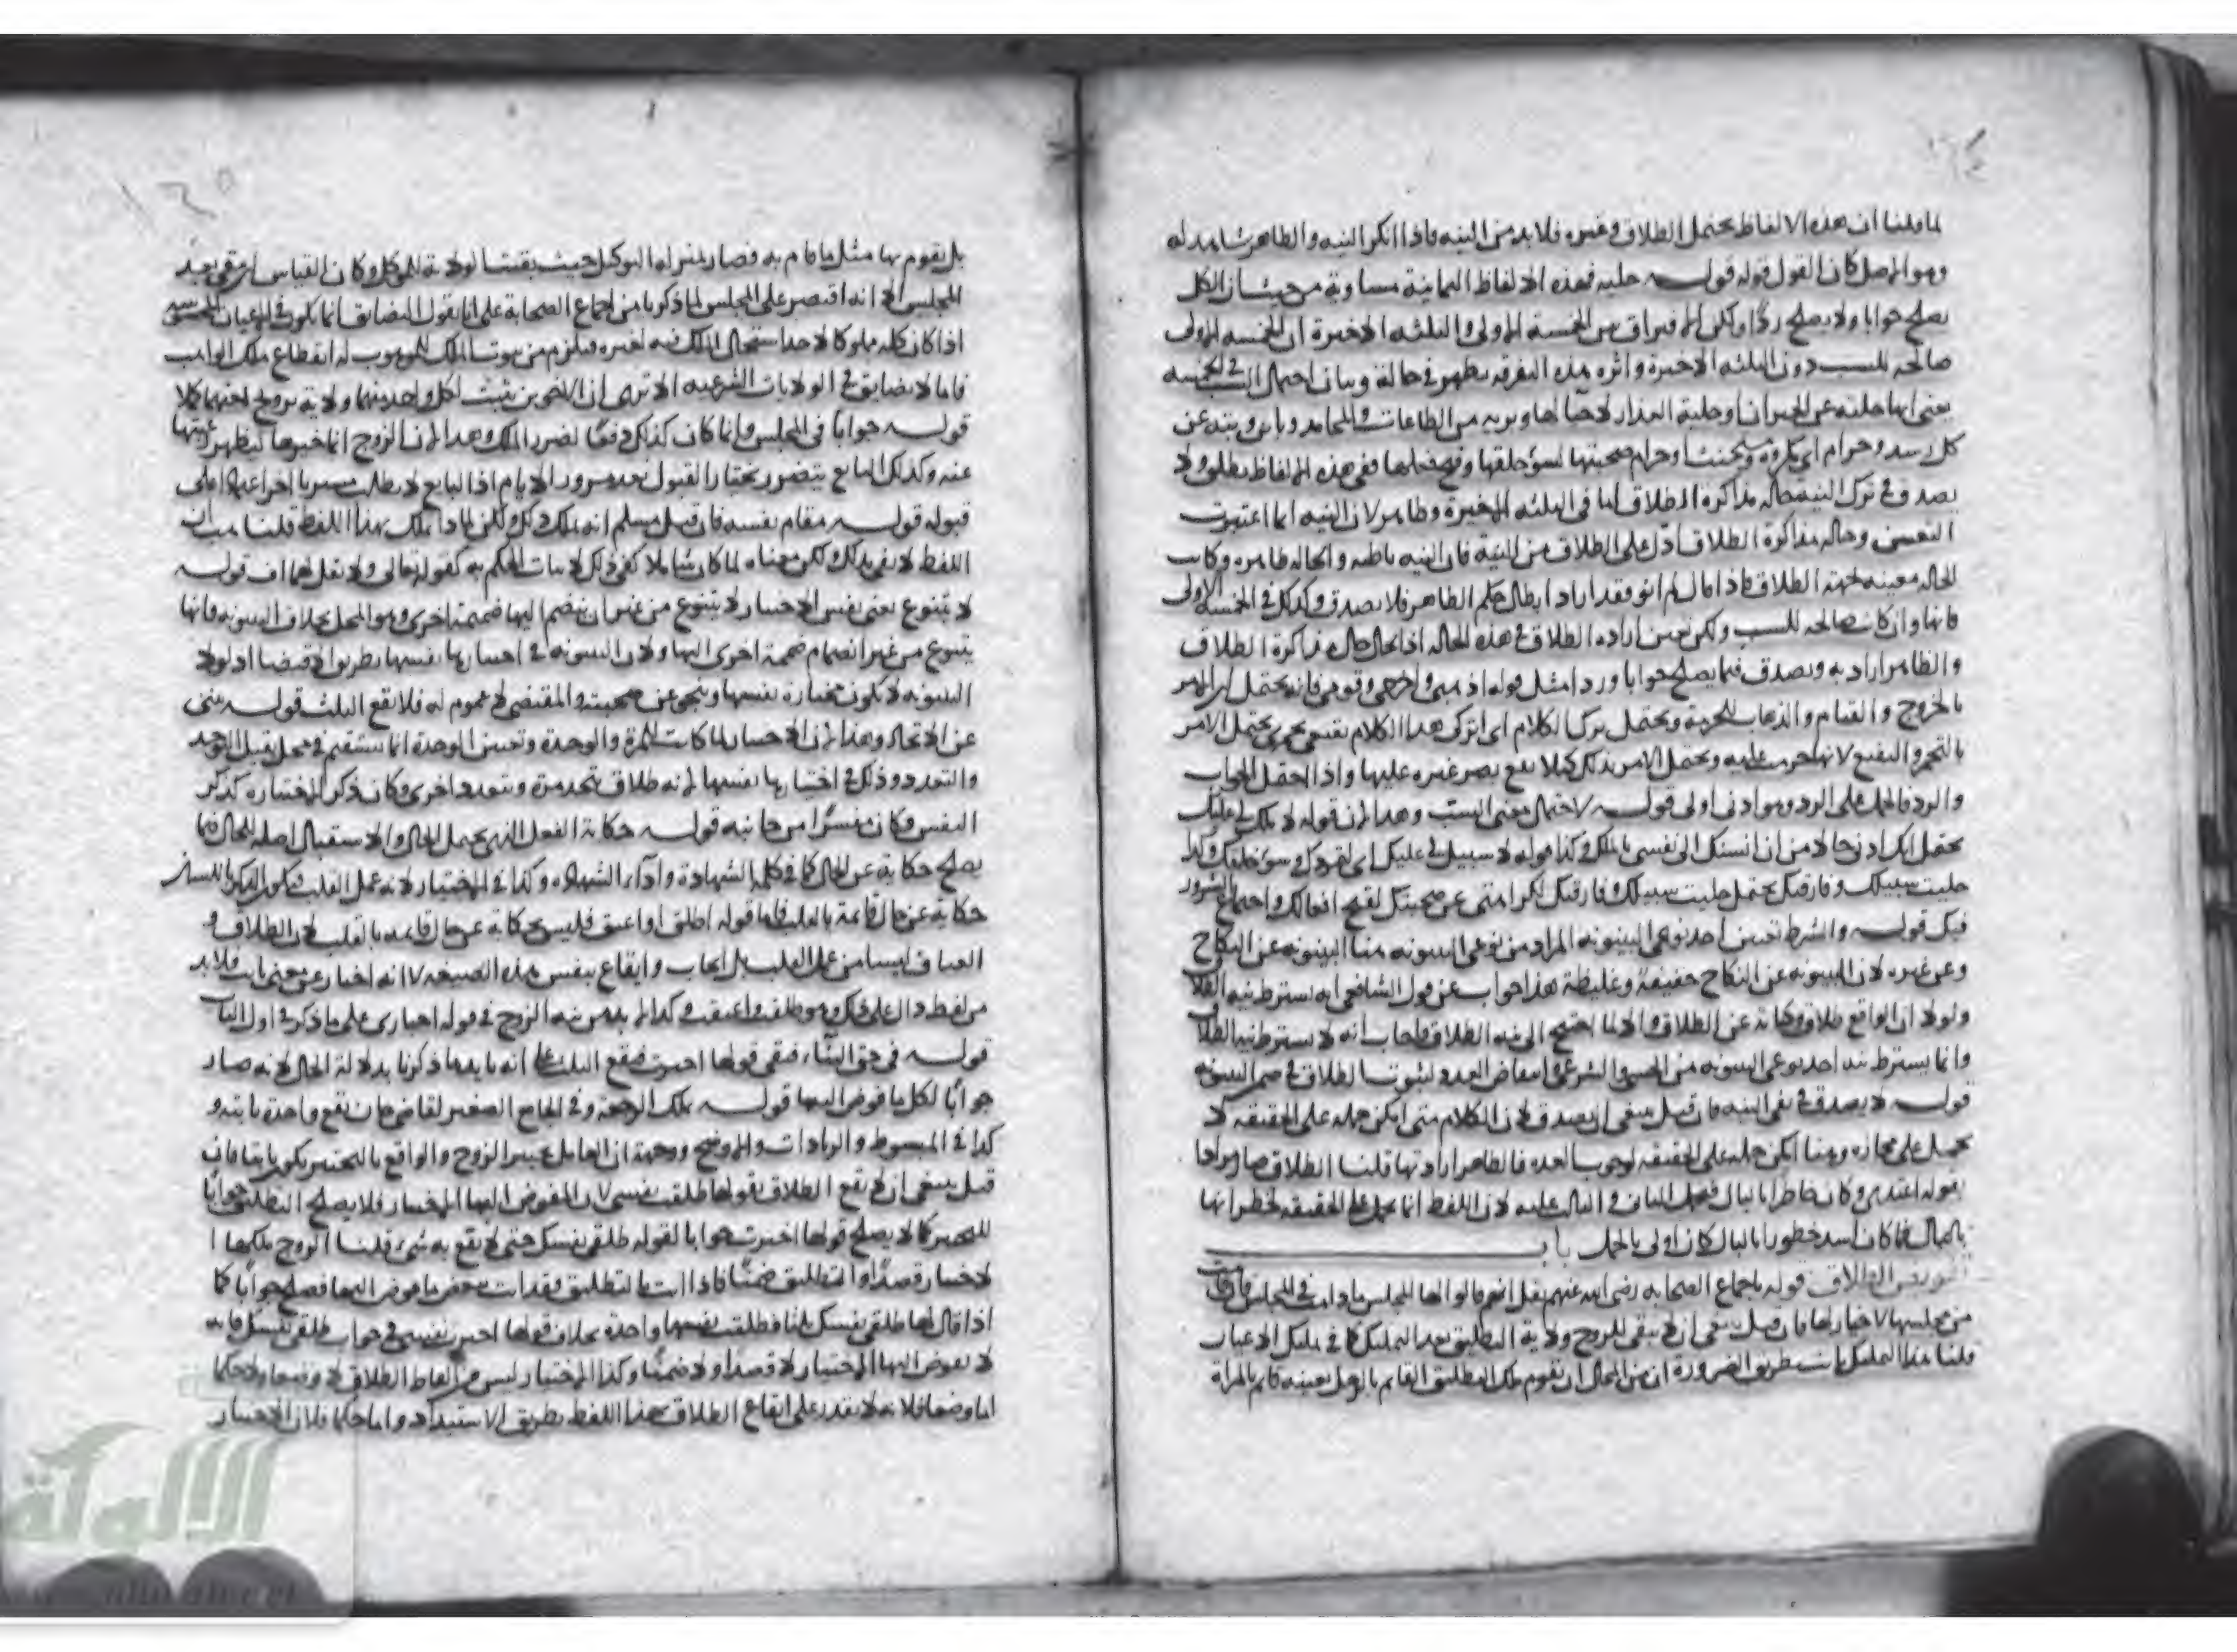 لما قلنا ان هذه الالفاظ يحتمل الطلاق وغيره فلا بد من النيه فاذا انكر النيه والظاهر شاهد له
وهو الاصل كان القول قوله قوله خليه فهذه الالفاظ الثمانية مساوية من حيث ان الكل
يصلح جوابا ولا يصلح ردا ولكن الافتراق بين الخمسة الاولى والثلثه الاخيرة ان الخمسه الاولى
صالحه للسب دون الثلثه الاخيرة واثره هذه التفرقه يظهر في حالة وبيان احتمال السب في الخمسه
يعنى انها خليه عن الخيرات او خلية العذار لا حيا لها وبريه من الطاعات والمحامد وباين وبته عن
كل رشد وحرام اي مكروه وحرام صحبتها لسؤ خلقها ففى هذه الالفاظ يطلق ولا
يصدق في ترك النيه حاله مذاكرة الطلاق اما فى الثلثه الاخيرة وظاهر لان النيه انما اعتبرت
وحاله مذاكرة الطلاق ادل على الطلاق من النية فان النيه باطنه والحاله ظاهره وكانت
الحاله معينه لجهة الطلاق فاذا قال لم انو فقد اراد ابطال حكم الظاهر فلا يصدق وكذلك فى الخمسة الاولى
فانها وان كانت صالحه للسب ولكن تعين اراده الطلاق في هذه الحاله اذ الحال حال مذاكرة الطلاق
والظاهر اراد به ويصدق فيما يصلح جوابا وردا مثل قوله اذهبى واخرجى وقومى فانه يحتمل الامر
بالخروج والقيام والذهاب ويحتمل ترك الكلام اى اتركى هذا الكلام تقنعى يحتمل الامر
بالتقنع لانها حرمت عليه ويحتمل الامر بذلك كيلا يقع بصر غيره عليها واذا احتمل الجواب
والرد فالحمل على الرد وهو ادنى اولى قوله لاحتمال معنى السب وهذا لان قوله لا ملك لى عليك
يحتمل انك ادنى حالا من ان انسبك الى نفسى بالملك وكذا قوله لا سبيل لى عليك وسؤ خلقك وكذا
خليت سبيلك وفارقتك يحتمل خليت سبيلك وفارقتك لكراهتى عن صحبتك لقبح افعالك واجتماع الشرور
فيك قوله والشرط تعيين احد نوعى البينونه المراد من نوعى البينونه هنا البينونه عن النكاح
وعن غيره لان البينونه عن النكاح خفيفة وغليظة هذا جواب عن قول الشافعى انه يشترط نيه الطلاق
ولولا ان الواقع طلاق وكناية عن الطلاق والا لما احتيج الى نيه الطلاق فاجاب انه لا يشترط نية الطلاق
وانما يشترط نيه احد نوعى البينونه من الحسى والشرعى وانتقاص العدد لثبوت الطلاق فى ضمن البينونه
قوله لا يصدق فى نفى النيه فان قيل ينبغى ان يصدق لان الكلام متى امكن حمله على الحقيقه لا
يحمل على مجازه وهنا امكن حمله على الحقيقه لوجوب العده فالظاهر ارادتها قلنا الطلاق صار مرادا
بقوله اعتدى وكان خاطرا بالبال فحمل الثانى والثالث عليه لان اللفظ انما يحمل على الحقيقه لخطرانها
بالبال فما كان اشد خطورا بالبال كان اولى بالحمل باب
تفويض الطلاق قوله باجماع الصحابه رضى الله عنهم نقل انهم قالوا لها المجلس ما دامت فى المجلس فان قامت
من مجلسها لا خيار لها فان قيل ينبغى ان لا يبقى للزوج ولاية التطليق بعد التمليك كما فى تمليك الاعيان
قلنا هذا التمليك ثابت بطريق الضرورة ان من المحال ان يقوم ملك التطليق القائم بالرجل بعينه قائم بالمراة
بل يقوم بها مثل ما قام به فصار بمنزله التوكيل حيث بقيت الولاية للموكل وكان القياس ان يبقى بعد
المجلس الا انه اقتصر على المجلس لما ذكرنا من اجماع الصحابة على انا نقول التضايق انما يكون فى الاعيان
اذا كان كله مملوكا لاحد استحال الملك فيه لغيره فيلزم من ثبوت الملك للموهوب له انقطاع ملك الواهب
فاما لا تضايق فى الولايات الشرعيه الا ترى ان الاخوين يثبت لكل واحد منهما ولاية تزويج اختهما كملا
قوله جوابا فى المجلس وانما كان كذلك دفعا لضرر الملك وهذا لان الزوج انما خيرها ليظهر رغبتها
عنه وكذلك البايع يتضرر القبول بعد مرور الايام اذ البايع لا يطلب
قبوله قوله مقام نفسه فان قيل مسلم انه يملك ذلك ولكن لماذا يملك بهذا اللفظ قلنا
اللفظ لا يفيد ذلك لكن معناه لما كان شاملا كفى ذلك لاثبات الحكم به كقوله تعالى ولا تقل لهما اف قوله
لا يتنوع يعنى نفس الاختيار لا يتنوع من غير ان ينضم اليها ضميمة اخرى وهو المحل بخلاف البينونه فانها
يتنوع من غير انضمام ضميمة اخرى اليها ولان البينونه فى اختيارها نفسها بطريق الاقتضا اذ لولا
البينونه لا يكون مختارة نفسها وينجو عن صحبته والمقتضى لا عموم له فلا يقع الثلث قوله ينبى
عن الاتحاد وهذا لان الاختيارة لما كانت للمرة والوحدة وتعيين الوحدة انما يستقيم فى محل يقبل التوحد
والتعدد وذلك فى اختيارها نفسها لانه طلاق يتحد مرة ويتعدد اخرى وكان ذكر الاختياره كذكر
النفس فكان مفسرا من جانبه قوله حكاية الفعل الذى يحتمل الحال والاستقبال اصله للحال فيما
يصلح حكاية عن الحال كما فى كلمة الشهادة واداء الشهاده وكذا فى الاختيار لانه عمل القلب فيكون الذكر باللسان
حكاية عن حال قائمة بالقلب فاما قوله اطلق او اعتق فليس بحكاية عن حال قائمه بالقلب لان الطلاق و
العتاق ليسا من عمل القلب بل ايجاب وايقاع بنفس هذه الصيغه لا انه اخبار عن معنى ثابت فلا بد
من لفظ دال على ذلك وهو طلقت واعتقت وكذا لا بد من نيه الزوج فى قوله اختارى على ما ذكر فى اول الباب
قوله فى حق البناء فبقى قولها اخترت فيقع الثلث اما انه ما بدها ذكرنا بدلالة الحال لانه صار
جوابا لكل ما فوض اليها قوله يملك الرجعة وفى الجامع الصغير لقاضى خان يقع واحدة باينه و
كذا فى المبسوط والزيادات والاوضح ووجهه ان العامل تخيير الزوج والواقع بالتخيير يكون باينا فان
قيل ينبغى ان لا يقع الطلاق بقولها طلقت نفسى لان المفوض اليها الاختيار فلا يصلح التطليق جوابا
للتخيير كما لا يصلح قولها اخترت جوابا لقوله طلقى نفسك حتى لا يقع به شىء قلنا الزوج ملكها ا
لاختيار قصدا والتطليق ضمنا فاذا اتت بالتطليق فقد اتت ببعض ما فوض اليها فصلح جوابا كما
اذا قال لها طلقى نفسك ثلثا فطلقت نفسها واحدة بخلاف قولها اخترت نفسى فى جواب طلقى نفسك فانه
لا تفويض اليها الاختيار لا قصدا ولا ضمنا وكذا الاختيار ليس من الفاظ الطلاق لا وضعا ولا حكما
اما وضعا فلانه لا يقدر على ايقاع الطلاق بهذا اللفظ بطريق الاستبداد واما حكما فلان الاختيار